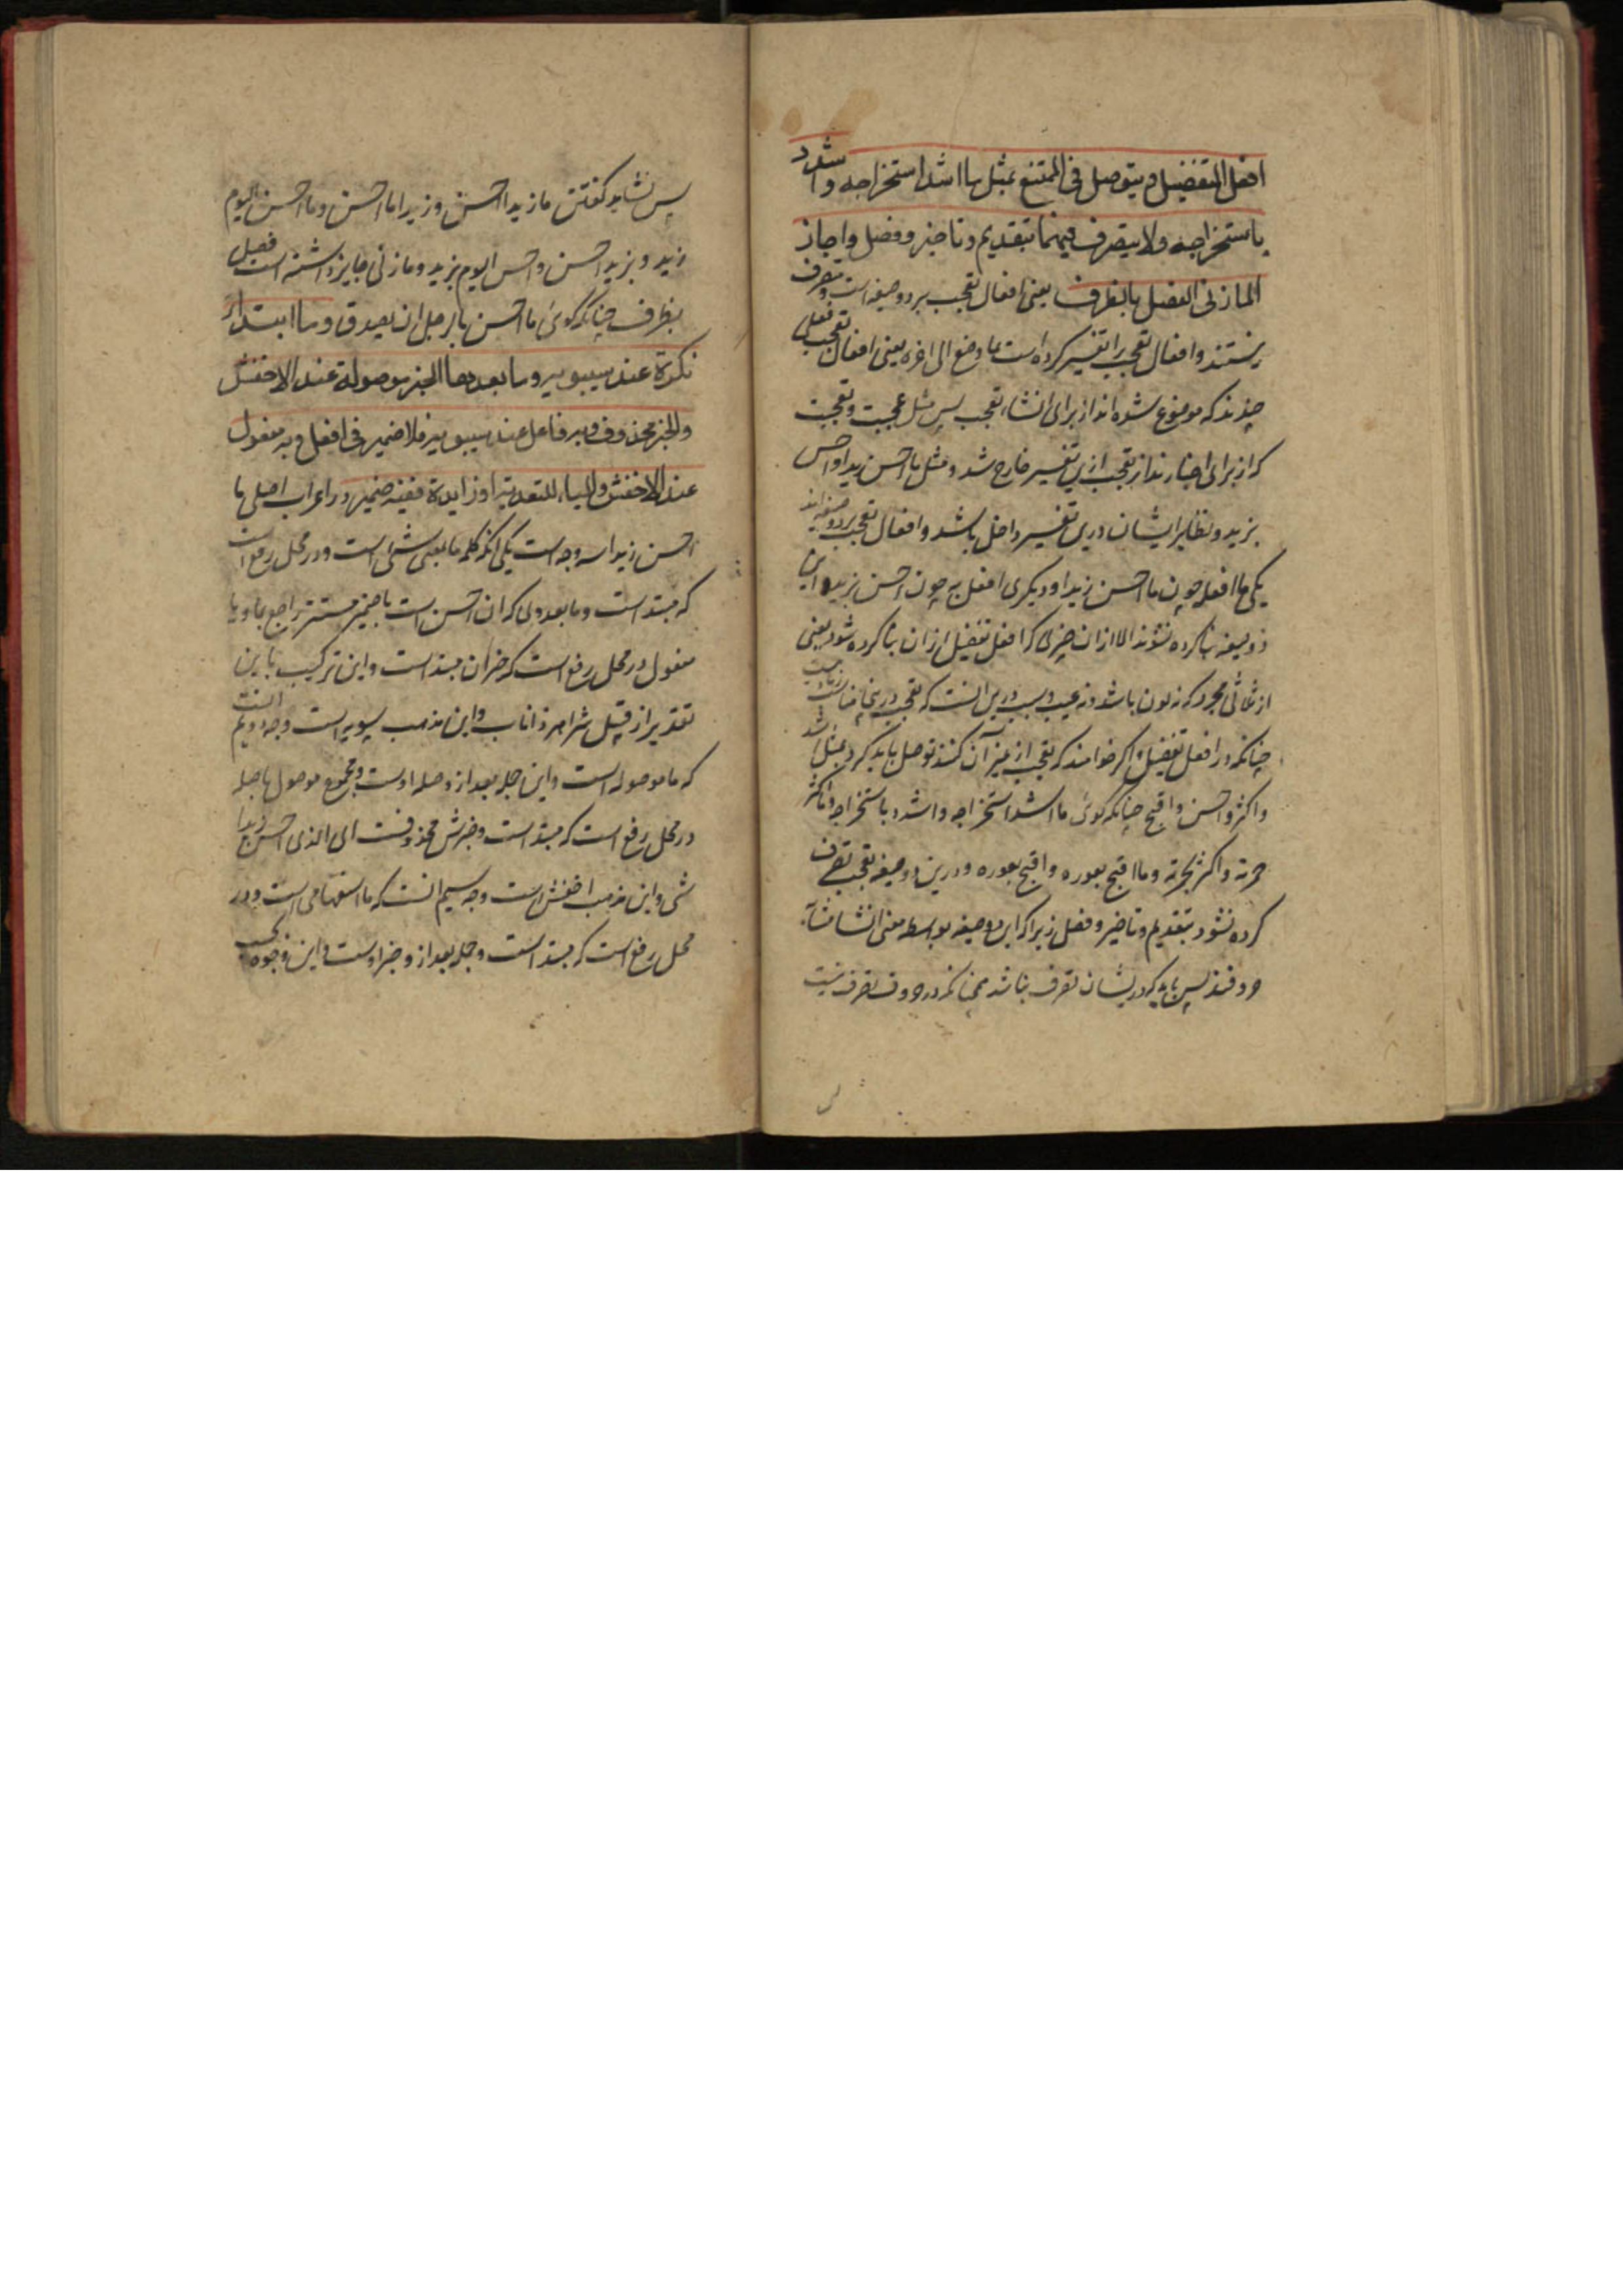 افعل التفضیل و یتوصل فی الممتنع بمثل ما اشد استخراجه و اشدد
باستخراجه ولا یتصرف فیهما بتقدیم و تاخیر و فصل و اجاز
المازنی الفصل بالظرف یعنی افعال تعجب بر دو صیغه است و متصرف
نیستند و افعال تعجب را تفسیر کرده است بما وضع الی اخره یعنی افعال تعجب فعلی
چندند که موضوع شده اند از برای انشاء تعجب پس مثل عجبت و تعجبت
که از برای اخبارند از تعجب ازین تفسیر خارج شد و مثل ما احسن زیدا و احسن
بزید و نظایر ایشان درین تفسیر داخل باشد و افعال تعجب بر دو صیغه اند
یکی ما افعله چون ما احسن زیدا و دیگری افعل به چون احسن بزید و این
دو صیغه بنا کرده نشوند الا از ان چیزی که افعل تفضیل از ان بنا کرده شود یعنی
از ثلاثی مجرد که نه لون باشد و نه عیب و سبب درین انست که تعجب در
چنانکه در افعل تفضیل و اگر خواهند که تعجب از غیر آن کنند توصل باید کرد بمثل اشد
و اکثر و احسن و اقبح چنانکه گوئی ما اشد استخراجه و اشدد باستخراجه و ما اکثر
حمرته و اکثر بحمرته و ما اقبح بعوره و اقبح بعوره و درین دو صیغه تعجب تصرف
کرده نشود بتقدیم و تاخیر و فصل زیرا که این دو صیغه بواسطه معنی انشا مشابه
حروفند پس باید که در ایشان تصرف نباشد همچنانکه در حروف تصرف نیست
پس نشاید گفتن ما زیدا احسن و زیدا ما احسن و ما احسن الیوم
زید و بزید احسن و احسن الیوم بزید و مازنی جایز داشته است فصل
بظرف چنانکه گوئی ما احسن بالرجل ان یصدق و ما ابتداء
نکرة عند سیبویه و ما بعدها الخبر موصولة عند الاخفش
و الخبر محذوف و به فاعل عند سیبویه فلا ضمیر فی افعل و به مفعول
عند الاخفش و الباء للتعدیة او زایدة ففیه ضمیر در اعراب اصلی ما
احسن زیدا سه وجه است یکی انکه کلمه ما بمعنی شئ است و در محل رفع است
که مبتدا است و ما بعد وی که ان احسن است با ضمیر مستتر راجع بما و با
مفعول در محل رفع است که خبر ان مبتدا است و این ترکیب باین
تقدیر از قبیل شر اهر ذا ناب و این مذهب سیبویه است وجه دویم انست
که ما موصوله است و این جمله بعد از و صله اوست و مجموع موصول با صله
در محل رفع است که مبتدا است و خبرش محذوفست ای الذی احسن زیدا
شئ و این مذهب اخفش است وجه سیم انست که ما استفهامی است و در
محل رفع است که مبتدا است و جمله بعد از و خبر اوست و این وجوه بحسب